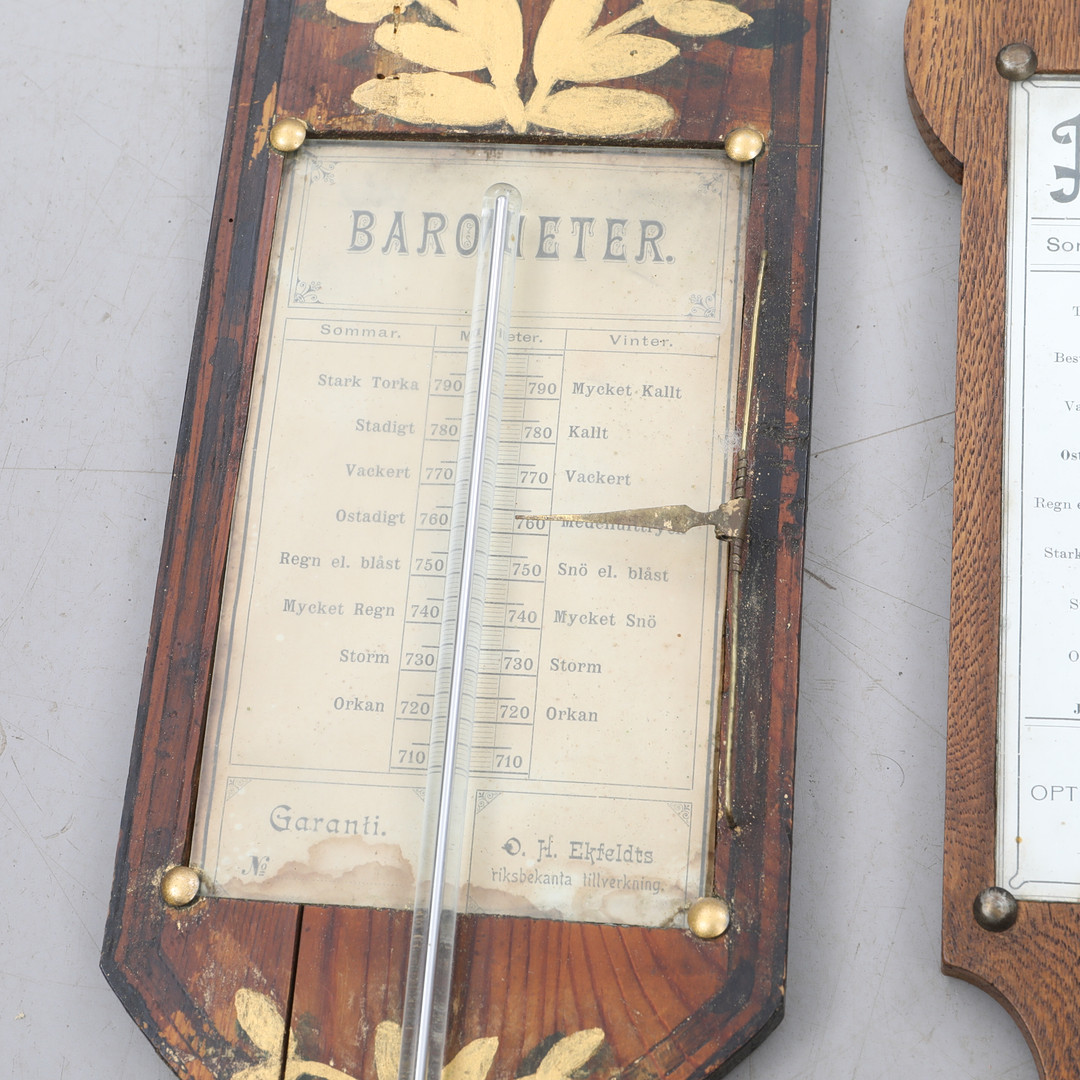 BAROMETER.
Sommar. Vinter.
Stark Torka 790 790 Mycket Kallt
Stadigt 780 780 Kallt
Vackert 770 770 Vackert
Ostadigt 760 760
Regn el. blåst 750 750 Snö el. blåst
Mycket Regn 740 740 Mycket Snö
Storm 730 730 Storm
Orkan 720 720 Orkan
710 710
Garanti.
№
O. H. Ekfeldts
riksbekanta tillverkning.
Regn
Stark
OPT